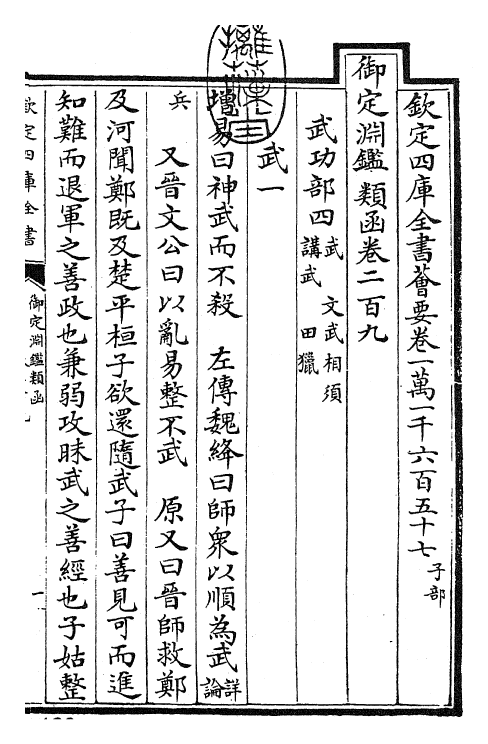 欽定四庫全書薈要卷一萬一千六百五十七 子部
御定淵鑑類函卷二百九
武功部四 武 文武相須 講武 田獵
武一
增易曰神武而不殺 左傳魏絳曰師衆以順為武 詳論
兵 又晉文公曰以亂易整不武 原又曰晉師救鄭
及河聞鄭既及楚平桓子欲還隨武子曰善見可而進
知難而退軍之善政也兼弱攻昧武之善經也子姑整
欽定四庫全書
御定淵鑑類函
一